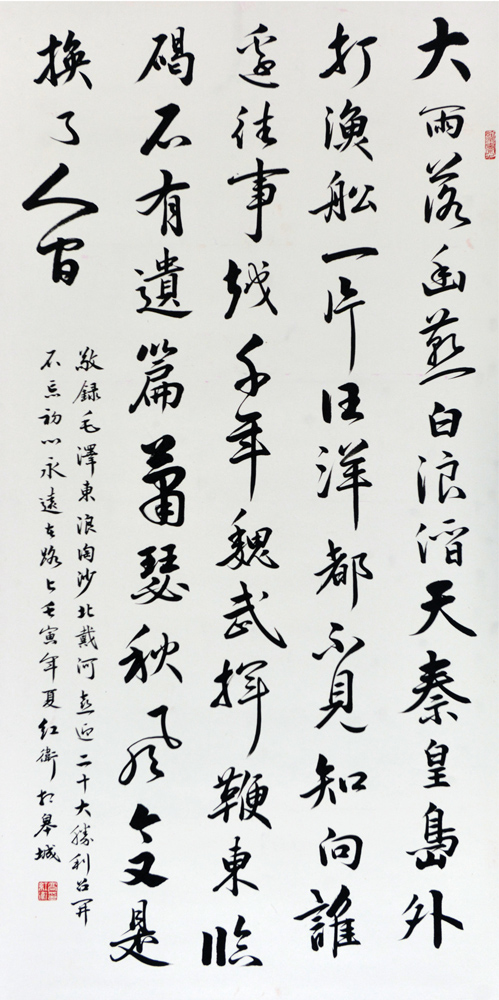 大雨落幽燕白浪滔天秦皇島外
打漁船一片汪洋都不見知向誰
邊往事越千年魏武揮鞭東臨
碣石有遺篇蕭瑟秋風今又是
換了人間
敬録毛澤東浪淘沙北戴河喜迎二十大勝利召开
不忘初心永遠在路上壬寅年夏紅衛於皋城